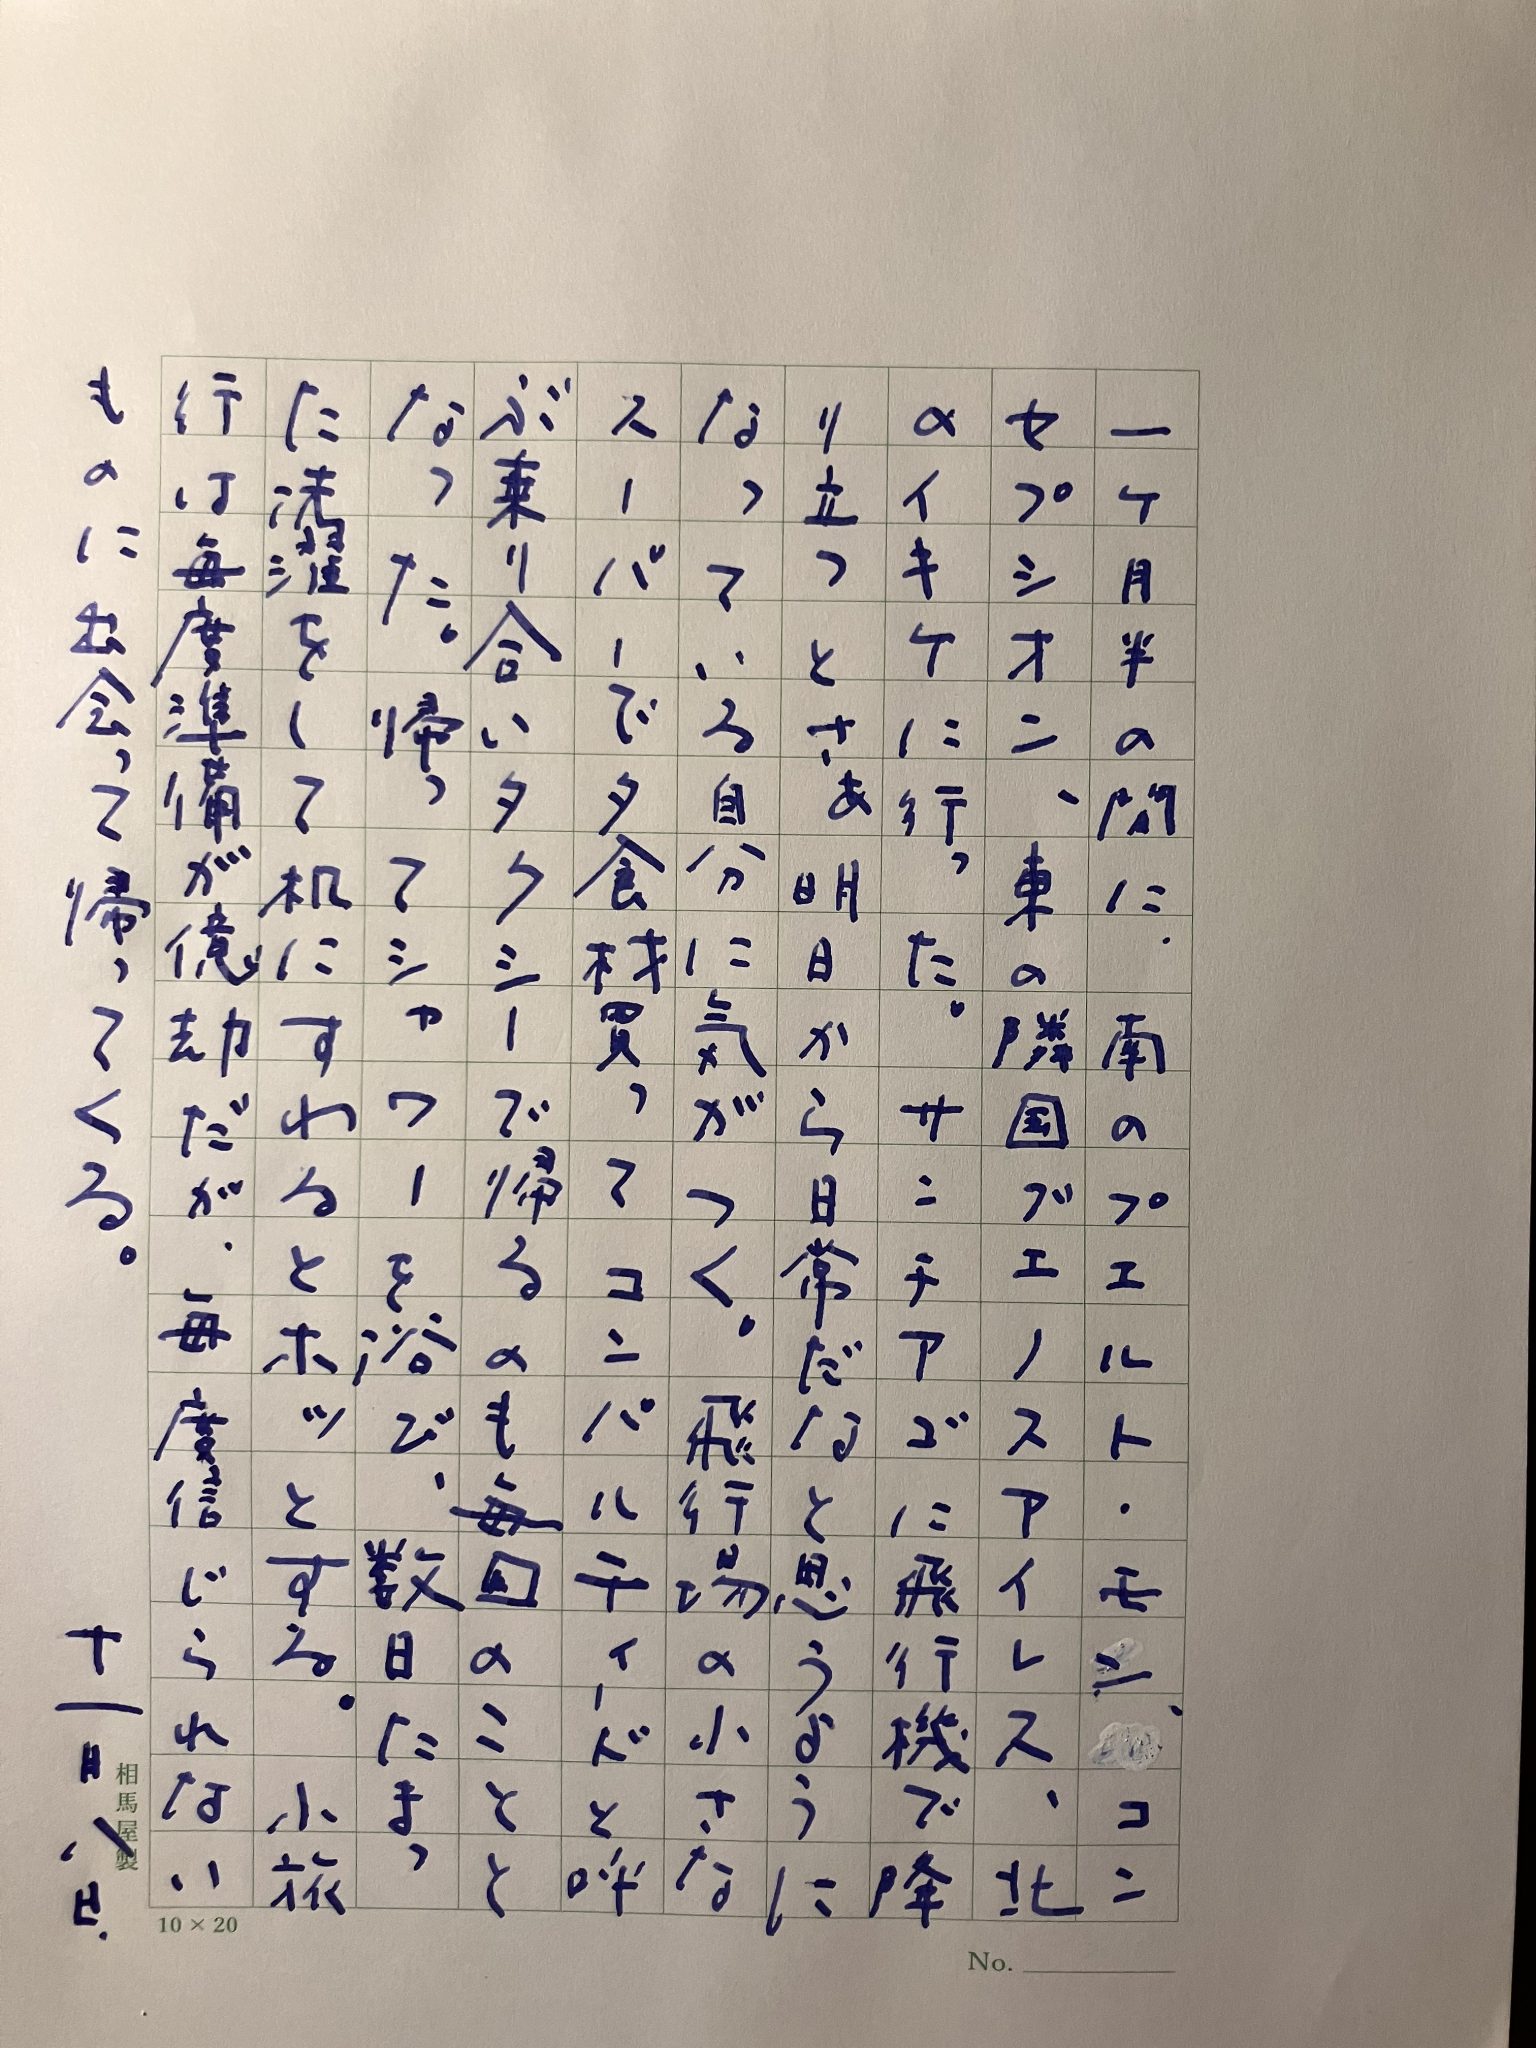 一ケ月半の間に、南のプエルト・モン、コン
セプシオン、東の隣国ブエノスアイレス、北
のイキケに行った。サンチアゴに飛行機で降
り立つとさあ明日から日常だなと思うように
なっている自分に気がつく。飛行場の小さな
スーパーで夕食材買ってコンパルティードと呼
ぶ乗り合いタクシーで帰るのも毎回のことと
なった。帰ってシャワーを浴び、数日たまっ
た洗濯をして机にすわるとホッとする。小旅
行は毎度準備が億劫だが、毎度信じられない
ものに出会って帰ってくる。
十一月八日.
相馬屋製
10×20
No.